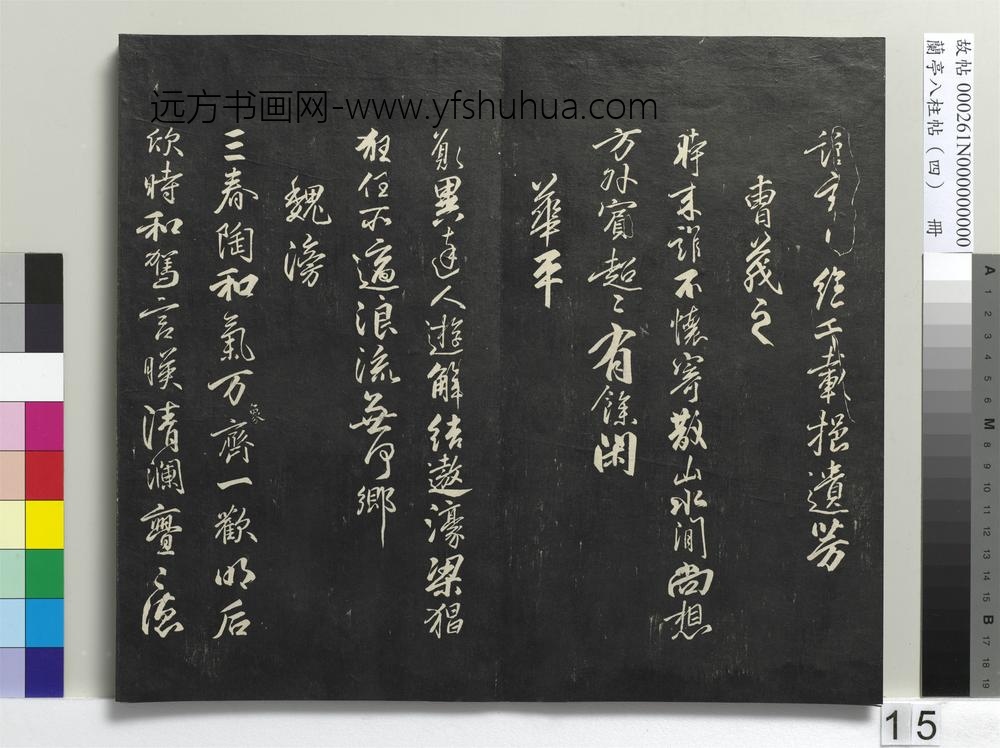 远方书画网-www.yfshuhua.com
故帖 000261N000000000
蘭亭八柱帖（四） 冊
絕千載挹遺芳
曹茂之
時來誰不懷寄散山水間尚想
方外賓超〻有餘閑
華平
異達人遊解結遨濠梁猖
狂任所適浪流無何鄉
魏滂
三春陶和氣万象齊一歡明后
欣時和駕言暎清瀾亹〻德
A 1 2 3 4 5 6 M 8 9 10 11 12 13 14 15 B 17 18 19
15